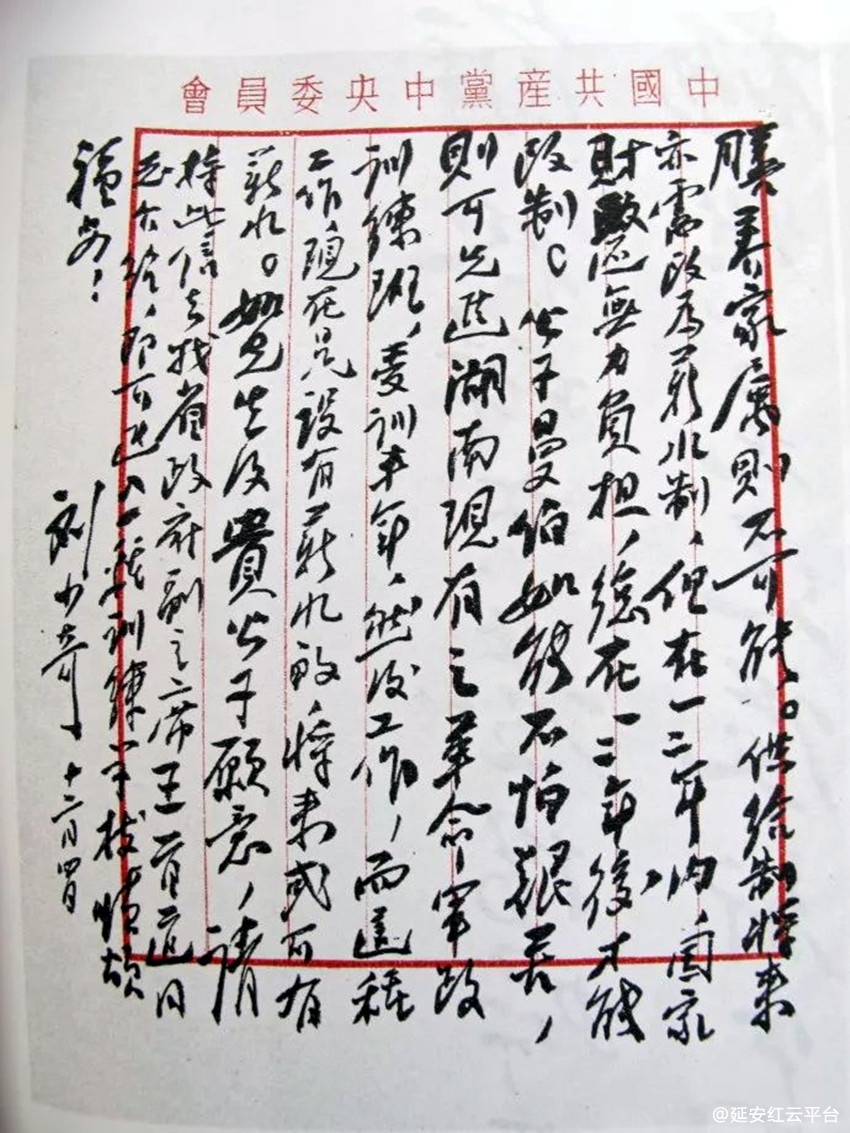 中國共産黨中央委員會
贍养家属則不可能。供给制將来
亦需改为薪水制，但在一二年内，国家
財政还無力負担，總在一二年後，才能
改制。公子曼伯如能不怕艱苦，
則可先進湖南現有之革命軍政
訓練班，受訓半年，然後工作，而這種
工作，現在是没有薪水的，將来或可有
薪水。如先生及貴公子願意，請
持此信去找省政府副主席王首道同
志介紹，即可进入訓練学校。順頌
福安！
刘少奇 十二月四日
@延安红云平台